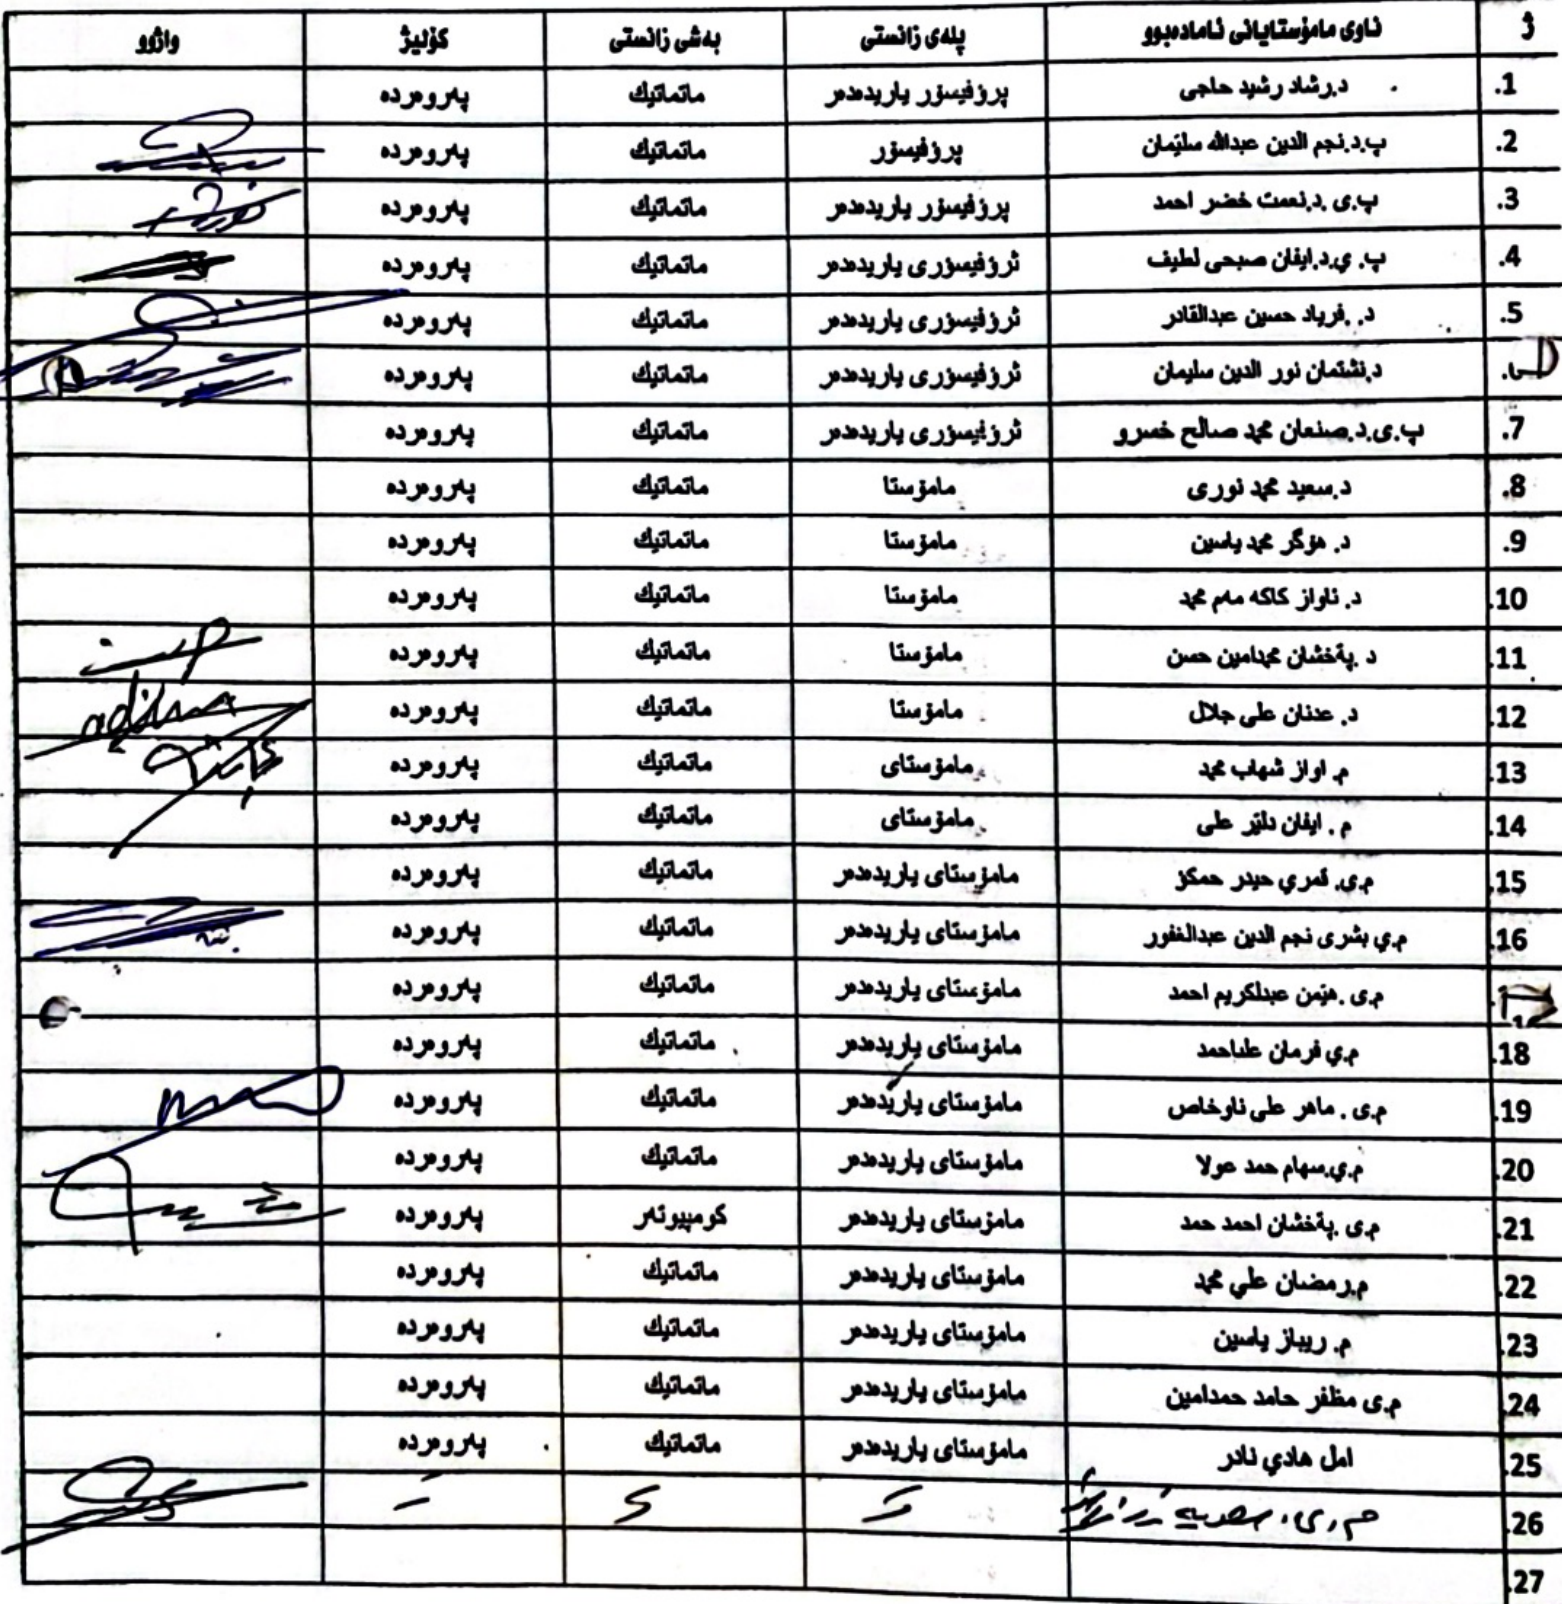 ژ ناوی مامۆستایانی ئامادەبوو پلەی زانستی بەشی زانستی کۆلیژ واژوو
1. د.رشاد رشید حاجی پرۆفیسۆر یاریدەدەر ماتماتیك پەروەردە
2. پ.د.نجم الدین عبدالله سلێمان پرۆفیسۆر ماتماتیك پەروەردە
3. پ.ی .د.نعمت خضر احمد پرۆفیسۆر یاریدەدەر ماتماتیك پەروەردە
4. پ. ي.د.ایفان صبحی لطیف ئرۆفیسۆری یاریدەدەر ماتماتیك پەروەردە
5. د. .فریاد حسین عبدالقادر ئرۆفیسۆری یاریدەدەر ماتماتیك پەروەردە
د.نشتمان نور الدین سلیمان ئرۆفیسۆری یاریدەدەر ماتماتیك پەروەردە
7. پ.ی.د.صنعان محمد صالح خسرو ئرۆفیسۆری یاریدەدەر ماتماتیك پەروەردە
8. د.سعید محمد نوری مامۆستا ماتماتیك پەروەردە
9. د. هۆگر محمد یاسین مامۆستا ماتماتیك پەروەردە
10. د. ئاواز کاکه مەم محمد مامۆستا ماتماتیك پەروەردە
11. د .پةخشان محمدامین حسن مامۆستا ماتماتیك پەروەردە
12. د. عدنان علی جلال مامۆستا ماتماتیك پەروەردە
13. م. اواز شهاب محمد مامۆستای ماتماتیك پەروەردە
14. م . ایفان دلێر علی مامۆستای ماتماتیك پەروەردە
15. م.ی. ئمري حیدر حمکۆ مامۆستای یاریدەدەر ماتماتیك پەروەردە
16. م.ي بشری نجم الدین عبدالغفور مامۆستای یاریدەدەر ماتماتیك پەروەردە
م.ی .هێمن عبدلکریم احمد مامۆستای یاریدەدەر ماتماتیك پەروەردە
18. م.ي فرمان مامۆستای یاریدەدەر ماتماتیك پەروەردە
19. م.ی . ماهر علی ناوخاص مامۆستای یاریدەدەر ماتماتیك پەروەردە
20. م.ي.سهام حمد عولا مامۆستای یاریدەدەر ماتماتیك پەروەردە
21. م.ی .پةخشان احمد حمد مامۆستای یاریدەدەر کومپیوتەر پەروەردە
22. م.رمضان علي محمد مامۆستای یاریدەدەر ماتماتیك پەروەردە
23. م. ریباز یاسین مامۆستای یاریدەدەر ماتماتیك پەروەردە
24. م.ی مظفر حامد حمدامین مامۆستای یاریدەدەر ماتماتیك پەروەردە
25. امل هادي نادر مامۆستای یاریدەدەر ماتماتیك پەروەردە
26. م.ی.
27.